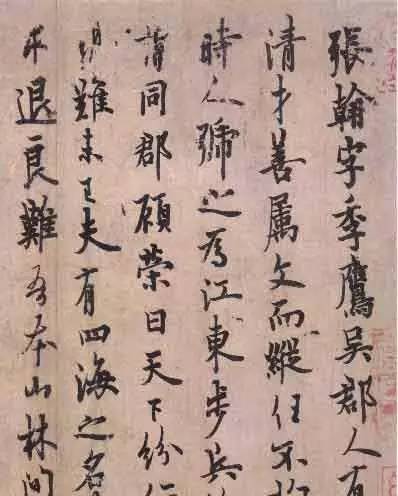 張翰字季鷹吳郡人有
清才善属文而縱任不
時人號之為江東步兵
謂同郡顧榮曰天下紛
難未已夫有四海之名
求退良難吾本山林間